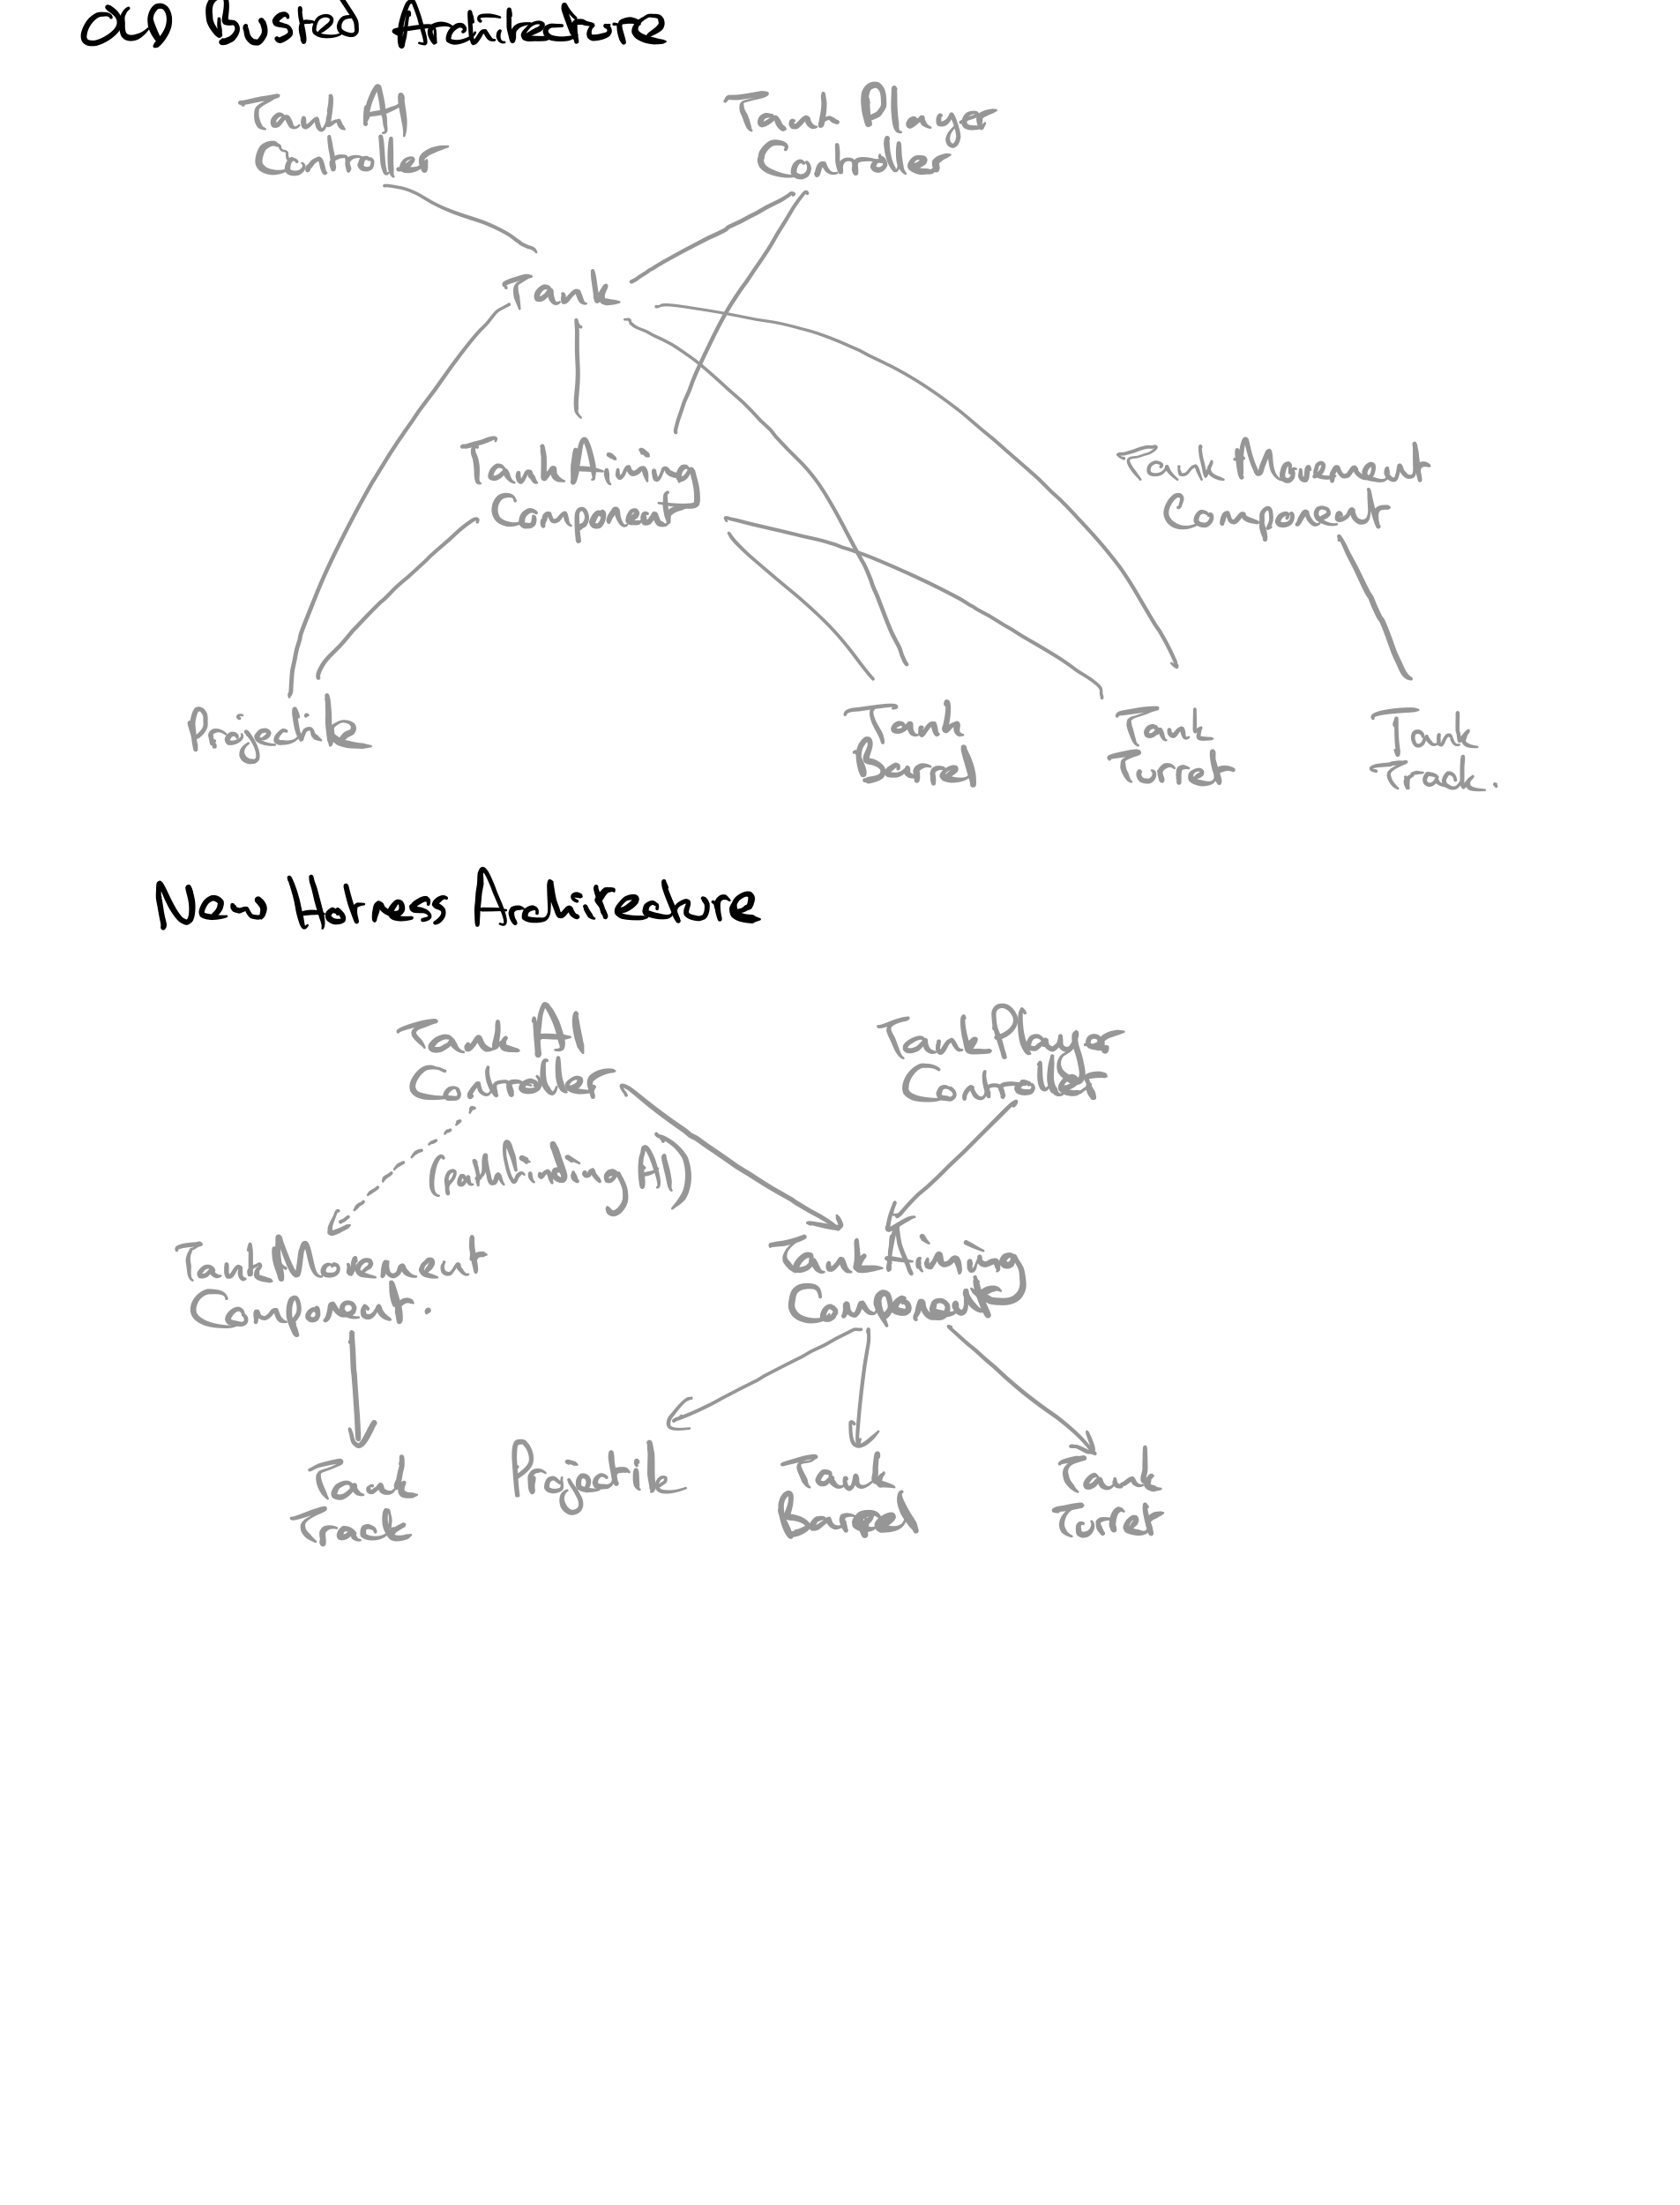 Old Busted Architecture
Tank AI
Controller
Tank Player
Controller
Tank
Tank Aiming
Component
Tank Movement
Component
Projectile
Tank
Barrel
Tank
Turret
Tank
Track.
New Hotness Architecture
Tank AI
Controller
Tank Player
Controller
(pathfinding AI)
Tank Movement
Component.
Tank Aiming
Component
Tank
Track
Projectile
Tank
Barrel
Tank
Turret